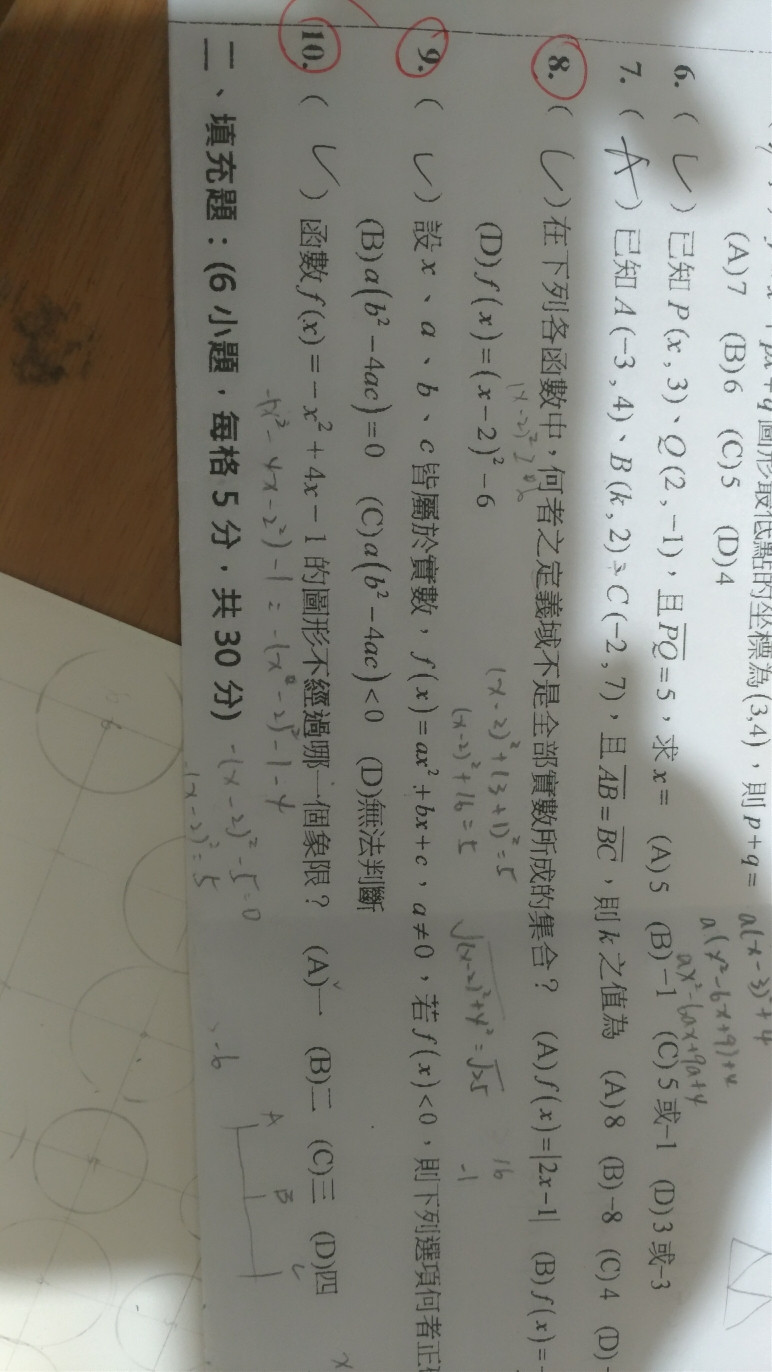 圖形最低點的坐標為(3,4)，則p+q=
(A)7 (B)6 (C)5 (D)4
a(x-3)²+4
a(x²-6x+9)+4
ax²-6ax+9a+4
6. ( ) 已知P(x,3)、Q(2,-1)，且PQ=5，求x= (A)5 (B)-1 (C)5或-1 (D)3或-3
7. ( A ) 已知A(-3,4)、B(k,2)、C(-2,7)，且AB=BC，則k之值為 (A)8 (B)-8 (C)4 (D)
8. ( ) 在下列各函數中，何者之定義域不是全部實數所成的集合？ (A)f(x)=|2x-1| (B)f(x)=
(D)f(x)=(x-2)²-6
(x-2)²+(3+1)²=5
(x-2)²+16=5
√(x-2)²+4²=√25
16
-1
9. ( ) 設x、a、b、c皆屬於實數，f(x)=ax²+bx+c，a≠0，若f(x)<0，則下列選項何者正
(B)a(b²-4ac)=0 (C)a(b²-4ac)<0 (D)無法判斷
10. ( ) 函數f(x)=-x²+4x-1的圖形不經過哪一個象限？ (A)一 (B)二 (C)三 (D)四
二、填充題：(6小題，每格5分，共30分)
-(x-2)²-5=0
(x-2)²=5
-6
A
B